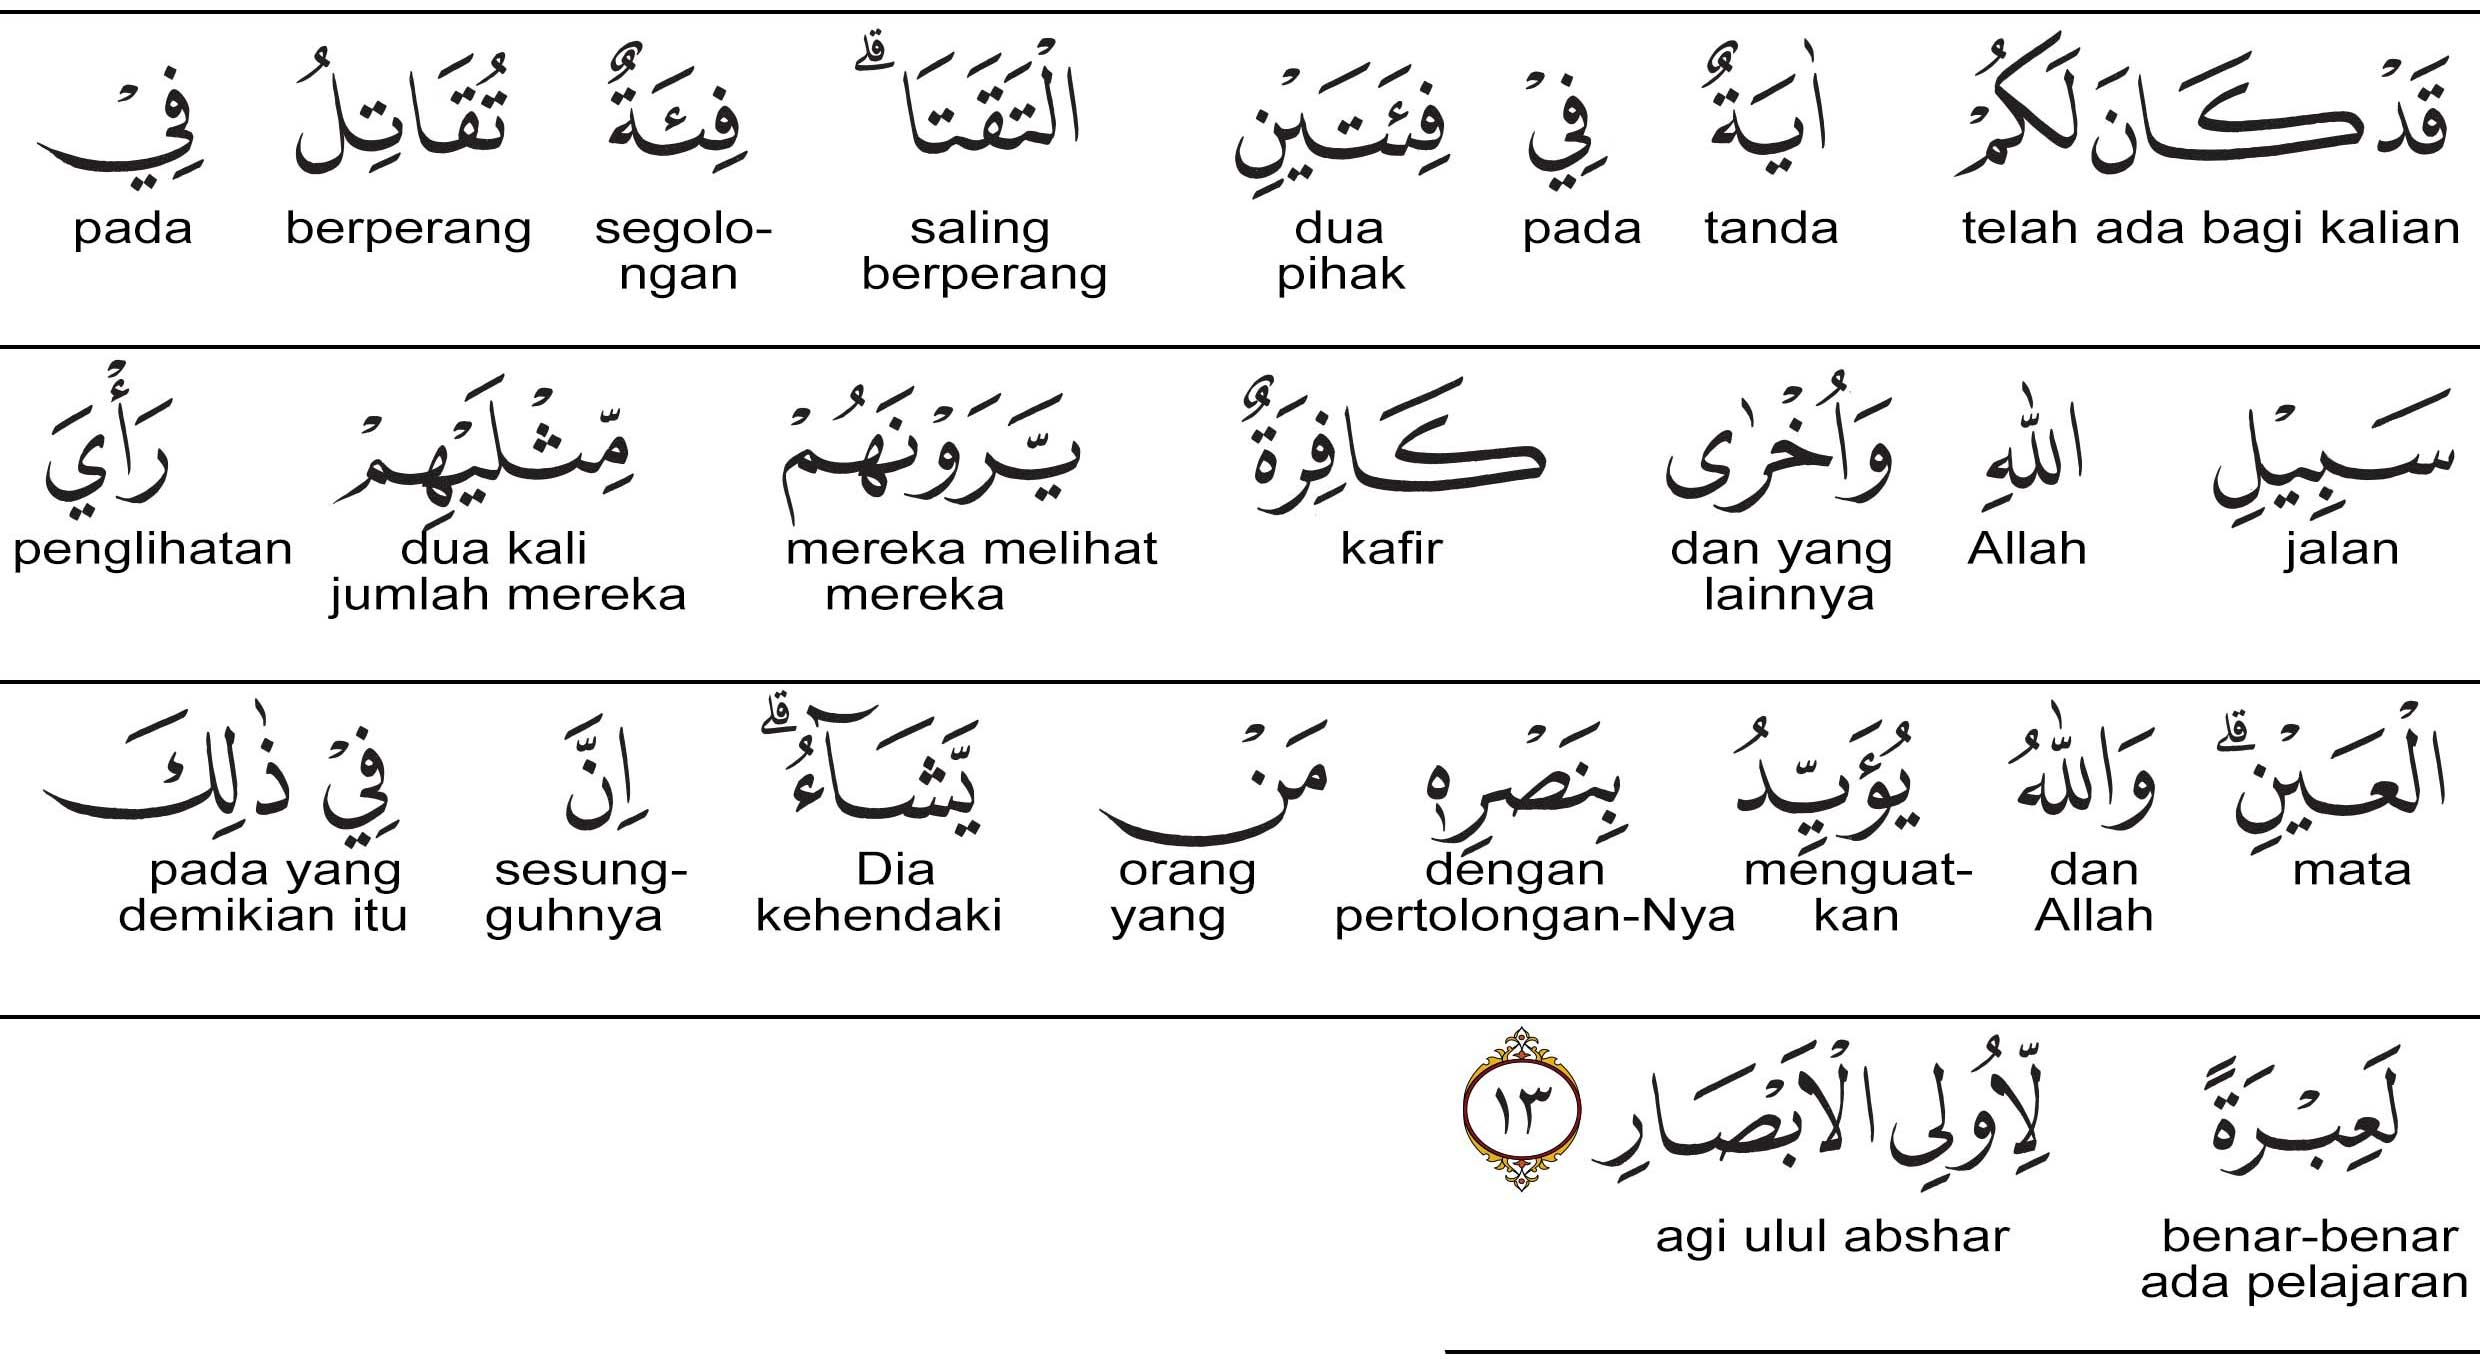 قَدْ كَانَ لَكُمْ اٰيَةٌ فِيْ فِئَتَيْنِ الْتَقَتَاۗ فِئَةٌ تُقَاتِلُ فِيْ
telah ada bagi kalian tanda pada dua saling segolo- berperang pada
pihak berperang ngan
سَبِيْلِ اللّٰهِ وَاُخْرٰى كَافِرَةٌ يَّرَوْنَهُمْ مِّثْلَيْهِمْ رَأْيَ
jalan Allah dan yang kafir mereka melihat dua kali penglihatan
lainnya mereka jumlah mereka
الْعَيْنِۗ وَاللّٰهُ يُؤَيِّدُ بِنَصْرِهٖ مَنْ يَّشَاۤءُۗ اِنَّ فِيْ ذٰلِكَ
mata dan menguat- dengan orang Dia sesung- pada yang
Allah kan pertolongan-Nya yang kehendaki guhnya demikian itu
لَعِبْرَةً لِّاُولِى الْاَبْصَارِ ١٣
benar-benar agi ulul abshar
ada pelajaran